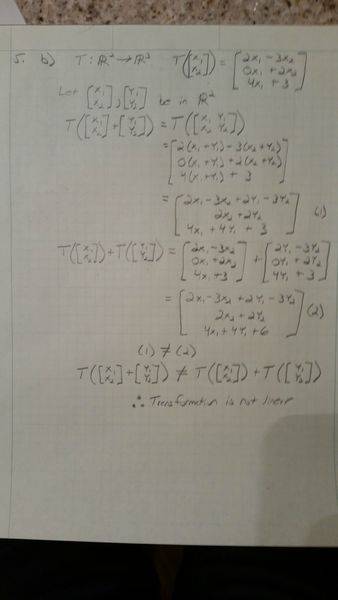 5. b) T: ℝ² → ℝ³ T([x₁ x₂]) = [2x₁ - 3x₂ 0x₁ + 2x₂ 4x₁ + 3]
Let [x₁ x₂], [y₁ y₂] be in ℝ²
T([x₁ x₂] + [y₁ y₂]) = T([x₁ y₁ x₂ y₂])
= [2(x₁ + y₁) - 3(x₂ + y₂) 0(x₁ + y₁) + 2(x₂ + y₂) 4(x₁ + y₁) + 3]
= [2x₁ - 3x₂ + 2y₁ - 3y₂ 2x₂ + 2y₂ 4x₁ + 4y₁ + 3] (1)
T([x₁ x₂]) + T([y₁ y₂]) = [2x₁ - 3x₂ 0x₁ + 2x₂ 4x₁ + 3] + [2y₁ - 3y₂ 0y₁ + 2y₂ 4y₁ + 3]
= [2x₁ - 3x₂ + 2y₁ - 3y₂ 2x₂ + 2y₂ 4x₁ + 4y₁ + 6] (2)
(1) ≠ (2)
T([x₁ x₂] + [y₁ y₂]) ≠ T([x₁ x₂]) + T([y₁ y₂])
∴ Transformation is not linear